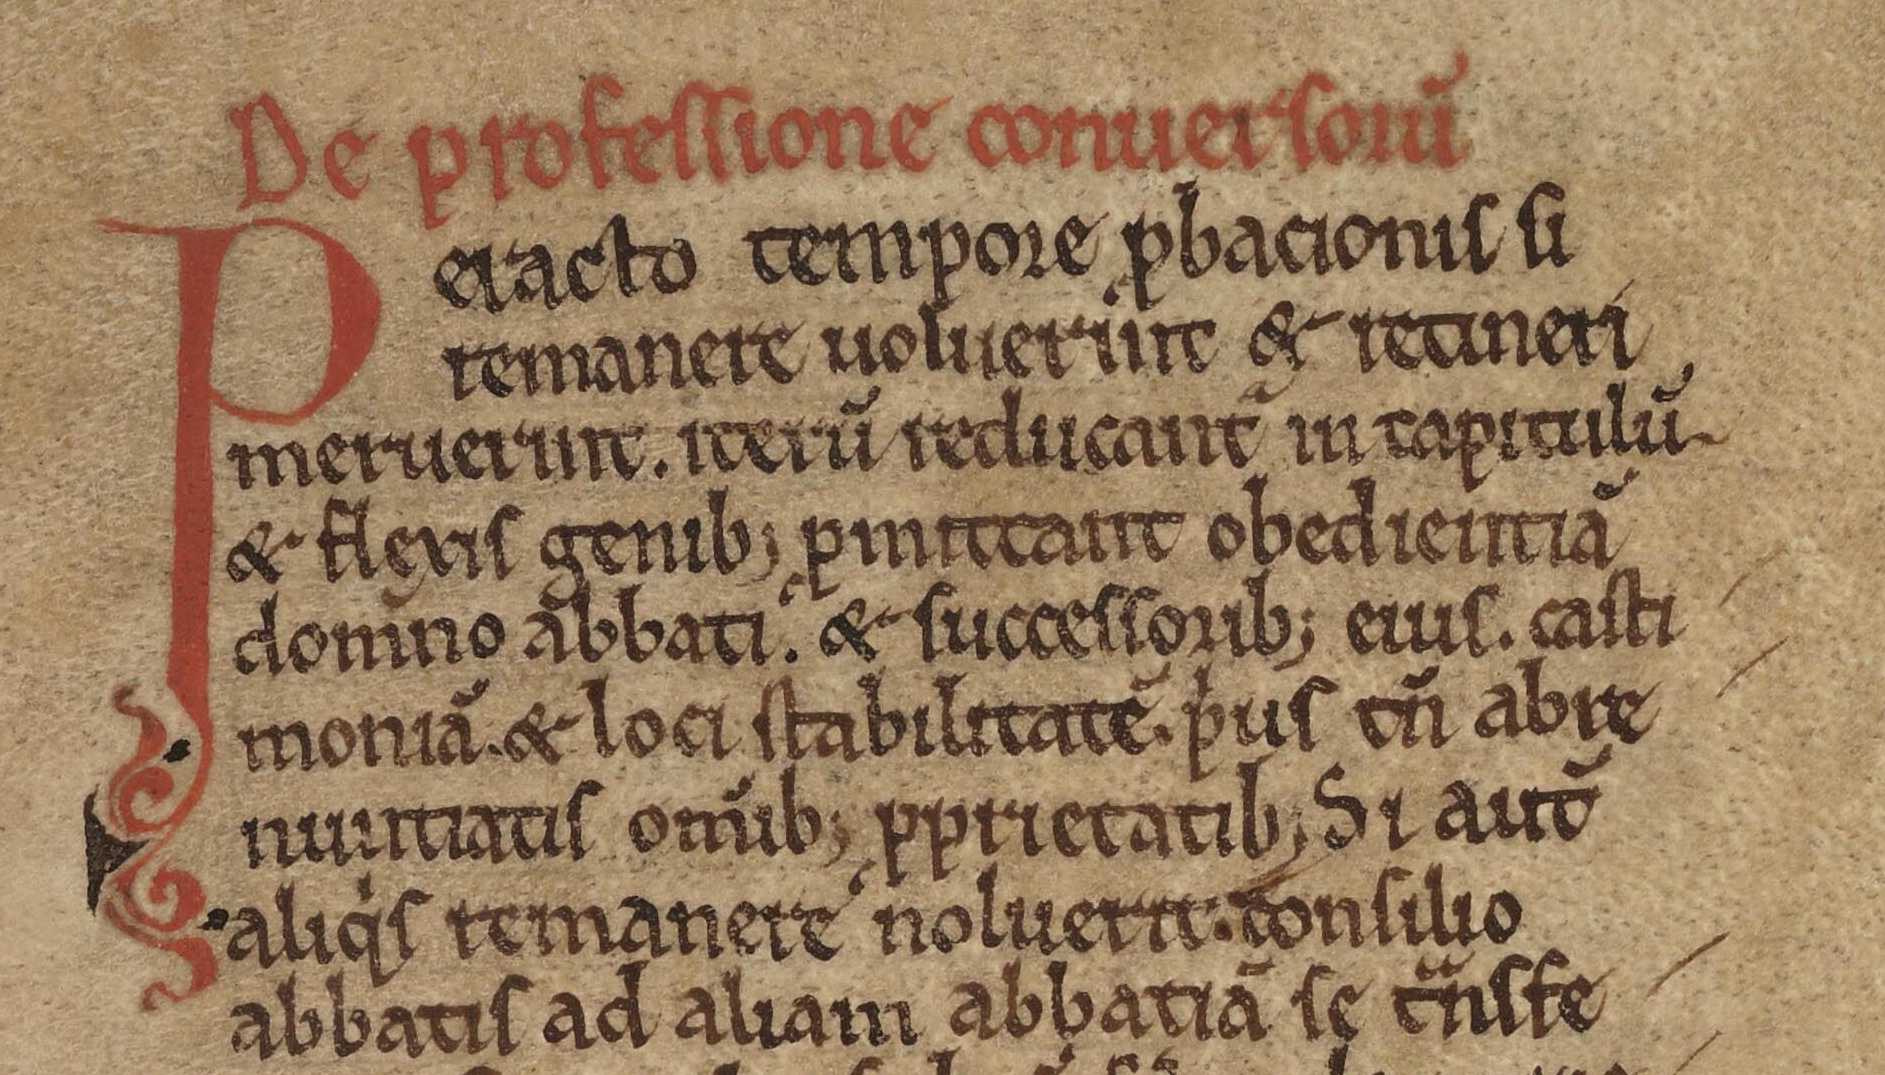 De professione conuersorũ
Peracto tempore ꝓbacionis si
remanere uoluerint & retineri
meruerint. iterũ reducant᷑ in capitulũ
& flexis genib; ꝓmittant obedientiã
domino abbati. & successorib; eius. casti
moniã. & loci stabilitatẽ. p̓us tñ abre
nuntiatis om̃ib; ꝓprietatib; Si aut̃
aliq̓s remanere noluerit. consilio
abbatis ad aliam abbatiã se t̃nsfe